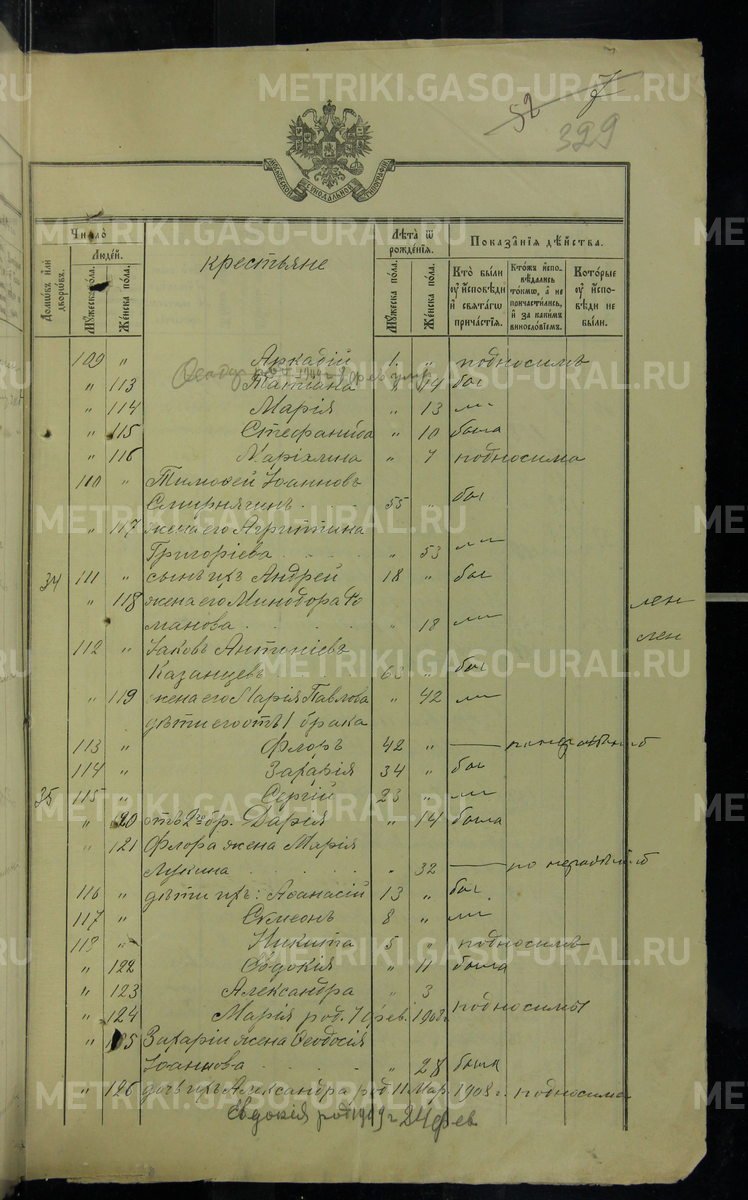 METRIKI.GASO-URAL.RU METRIKI.GASO-URAL.RU
52 7
329
МОСКОВСКОЙ СѴНОДАЛЬНОЙ ТИПОГРАФІИ
Число̀
Домѡ́въ или дворѡ́въ.
Люде́й.
Мꙋ́жеска по́ла. Же́нска по́ла.
крестьяне
Лѣ́та ѿ рожде́нїя.
Мꙋ́жеска по́ла. Же́нска по́ла.
Показа̑нїя дѣ́йства.
Кто̀ бы́ли ᲂу҆ и҆́сповѣди и҆ свята́гѡ прича́стїя.
Кто́жъ и҆спо­вѣ́дались то́кмѡ, а҆ не причасти́лись, и҆ за каки́мъ винослові́емъ.
Кото́рые ᲂу҆ и҆́спо­вѣди не бы́ли.
109 " Аркадій 1 " подносимъ
" 113 Татіана " 14 был
" 114 Марія " 13 —
" 115 Стефанида " 10 была
" 116 " 7 подносима
110 " Тимоѳей Іоанновъ
Смирнягинъ 55 " был
" 117 жена его Агриппина
Григоріева " 53 —
34 111 " сынъ ихъ Андрей 18 " был
" 118 жена его Минодора Ро
манова " 18 —
лен
лен
112 " Іаковъ Антипіевъ
Казанцевъ 63 " был
" 119 жена его Марія Павлова " 42 —
дѣти его отъ 1 брака
113 " Флоръ 42 " — по нерадѣнію
114 " Захарія 34 " был
35 115 " Сергій 23 " —
" 120 отъ 2го бр. Дарія " 14 была
" 121 Флора жена Марія
Лукина " 32 — по нерадѣнію
116 " дѣти ихъ: Аѳанасій 13 " был
117 " Симеонъ 8 " —
118 " Никита 5 " подносимъ
" 122 Евдокія " 11 была
" 123 Александра " 3
" 124 Марія род. 7 фев. 1908 г. подносимы
" 125 Захаріи жена Ѳеодосія
Іоаннова " 28 была
" 126 дочь ихъ Александра род 11 Мар. 1908 г. подносима
Евдокія род 1909 г 24 фев